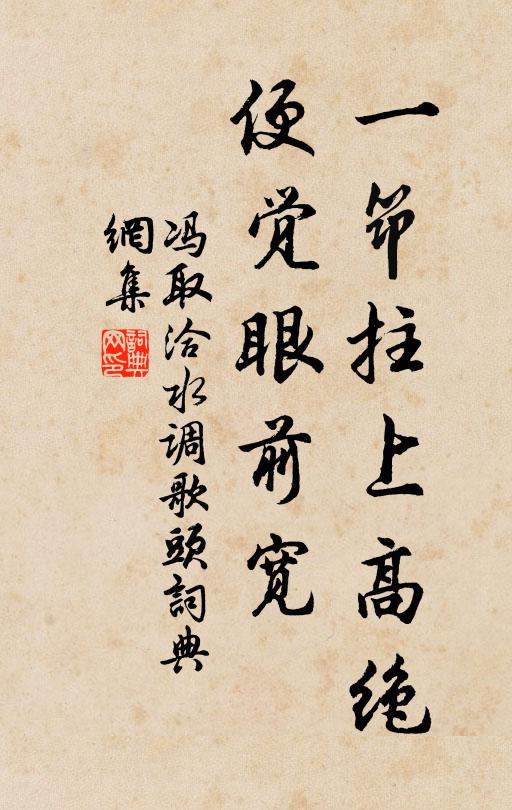 一笻拄上高绝
便觉眼前宽
冯取洽水调歌头词典
網集
詞典网印